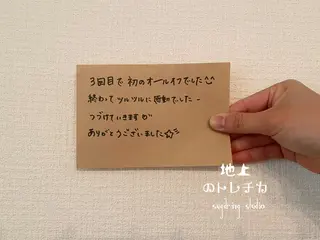 3回目で初のオールオフでした
終わってツルツルに感動でしたー
つづけていきます
ありがとうございました☆
地上
のトレチカ